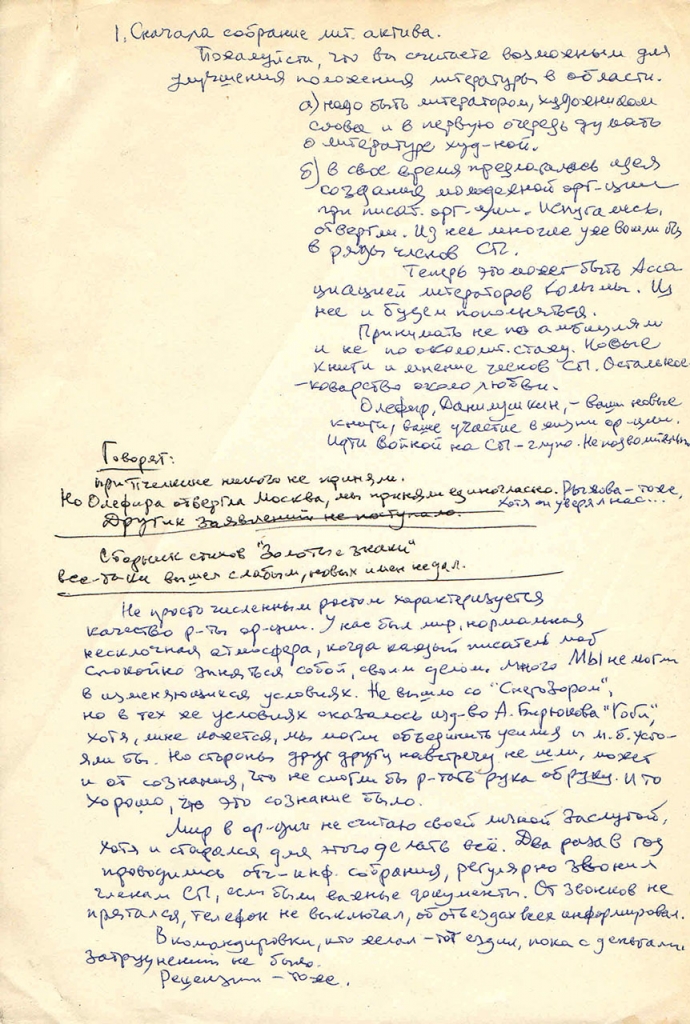 1. Сначала собрание лит. актива.
Пожалуйста, что вы считаете возможным для
улучшения положения литературы в области.
а) надо быть литератором, художником
слова и в первую очередь думать
о литературе худ-ной.
б) в свое время предлагалась идея
создания молодежной орг-ции
при писат. орг-ции. Испугались,
отвергли. Из нее многие уже вошли бы
в ряды членов СП.
Теперь это может быть Ассо
циацией литераторов Колымы. Из
нее и будем пополняться.
Принимать не по амбициям
и не по окололит. стажу. Новые
книги и мнение членов СП. Остальное
- коварство около любви.
Олефир, Данилушкин, - ваши новые
книги, ваше участие в жизни ор-ции.
Идти войной на СП - глупо. Непозволительно
Говорят:
при Пчелкине никого не приняли.
Но Олефира отвергла Москва, мы приняли единогласно. Рыжова - тоже,
хотя он уверял нас...
Других заявлений не поступало.
Сборник стихов "Золотые знаки"
все-таки вышел слабым, новых имен не дал.
Не просто численным ростом характеризуется
качество р-ты ор-ции. У нас был мир, нормальная
несклочная атмосфера, когда каждый писатель мог
спокойно заняться собой, своим делом. Много мы не могли
в изменяющихся условиях. Не вышло со "Снегозором",
но в тех же условиях оказалось изд-во А. Бирюкова "Гобл",
хотя, мне кажется, мы могли объединить усилия и м.б. усто-
яли бы. Но стороны друг другу навстречу не шли, может
и от сознания, что не смогли бы р-тать рука об руку. И то
хорошо, что это сознание было.
Мир в ор-ции не считаю своей личной заслугой,
хотя и старался для этого делать всё. Два раза в год
проводились отч-инф. собрания, регулярно звонил
членам СП, если были важные документы. От звонков не
прятался, телефон не выключал, об отъездах всех информировал.
В командировки, кто желал - тот ездил, пока с деньгами
затруднений не было.
Рецензии - тоже.